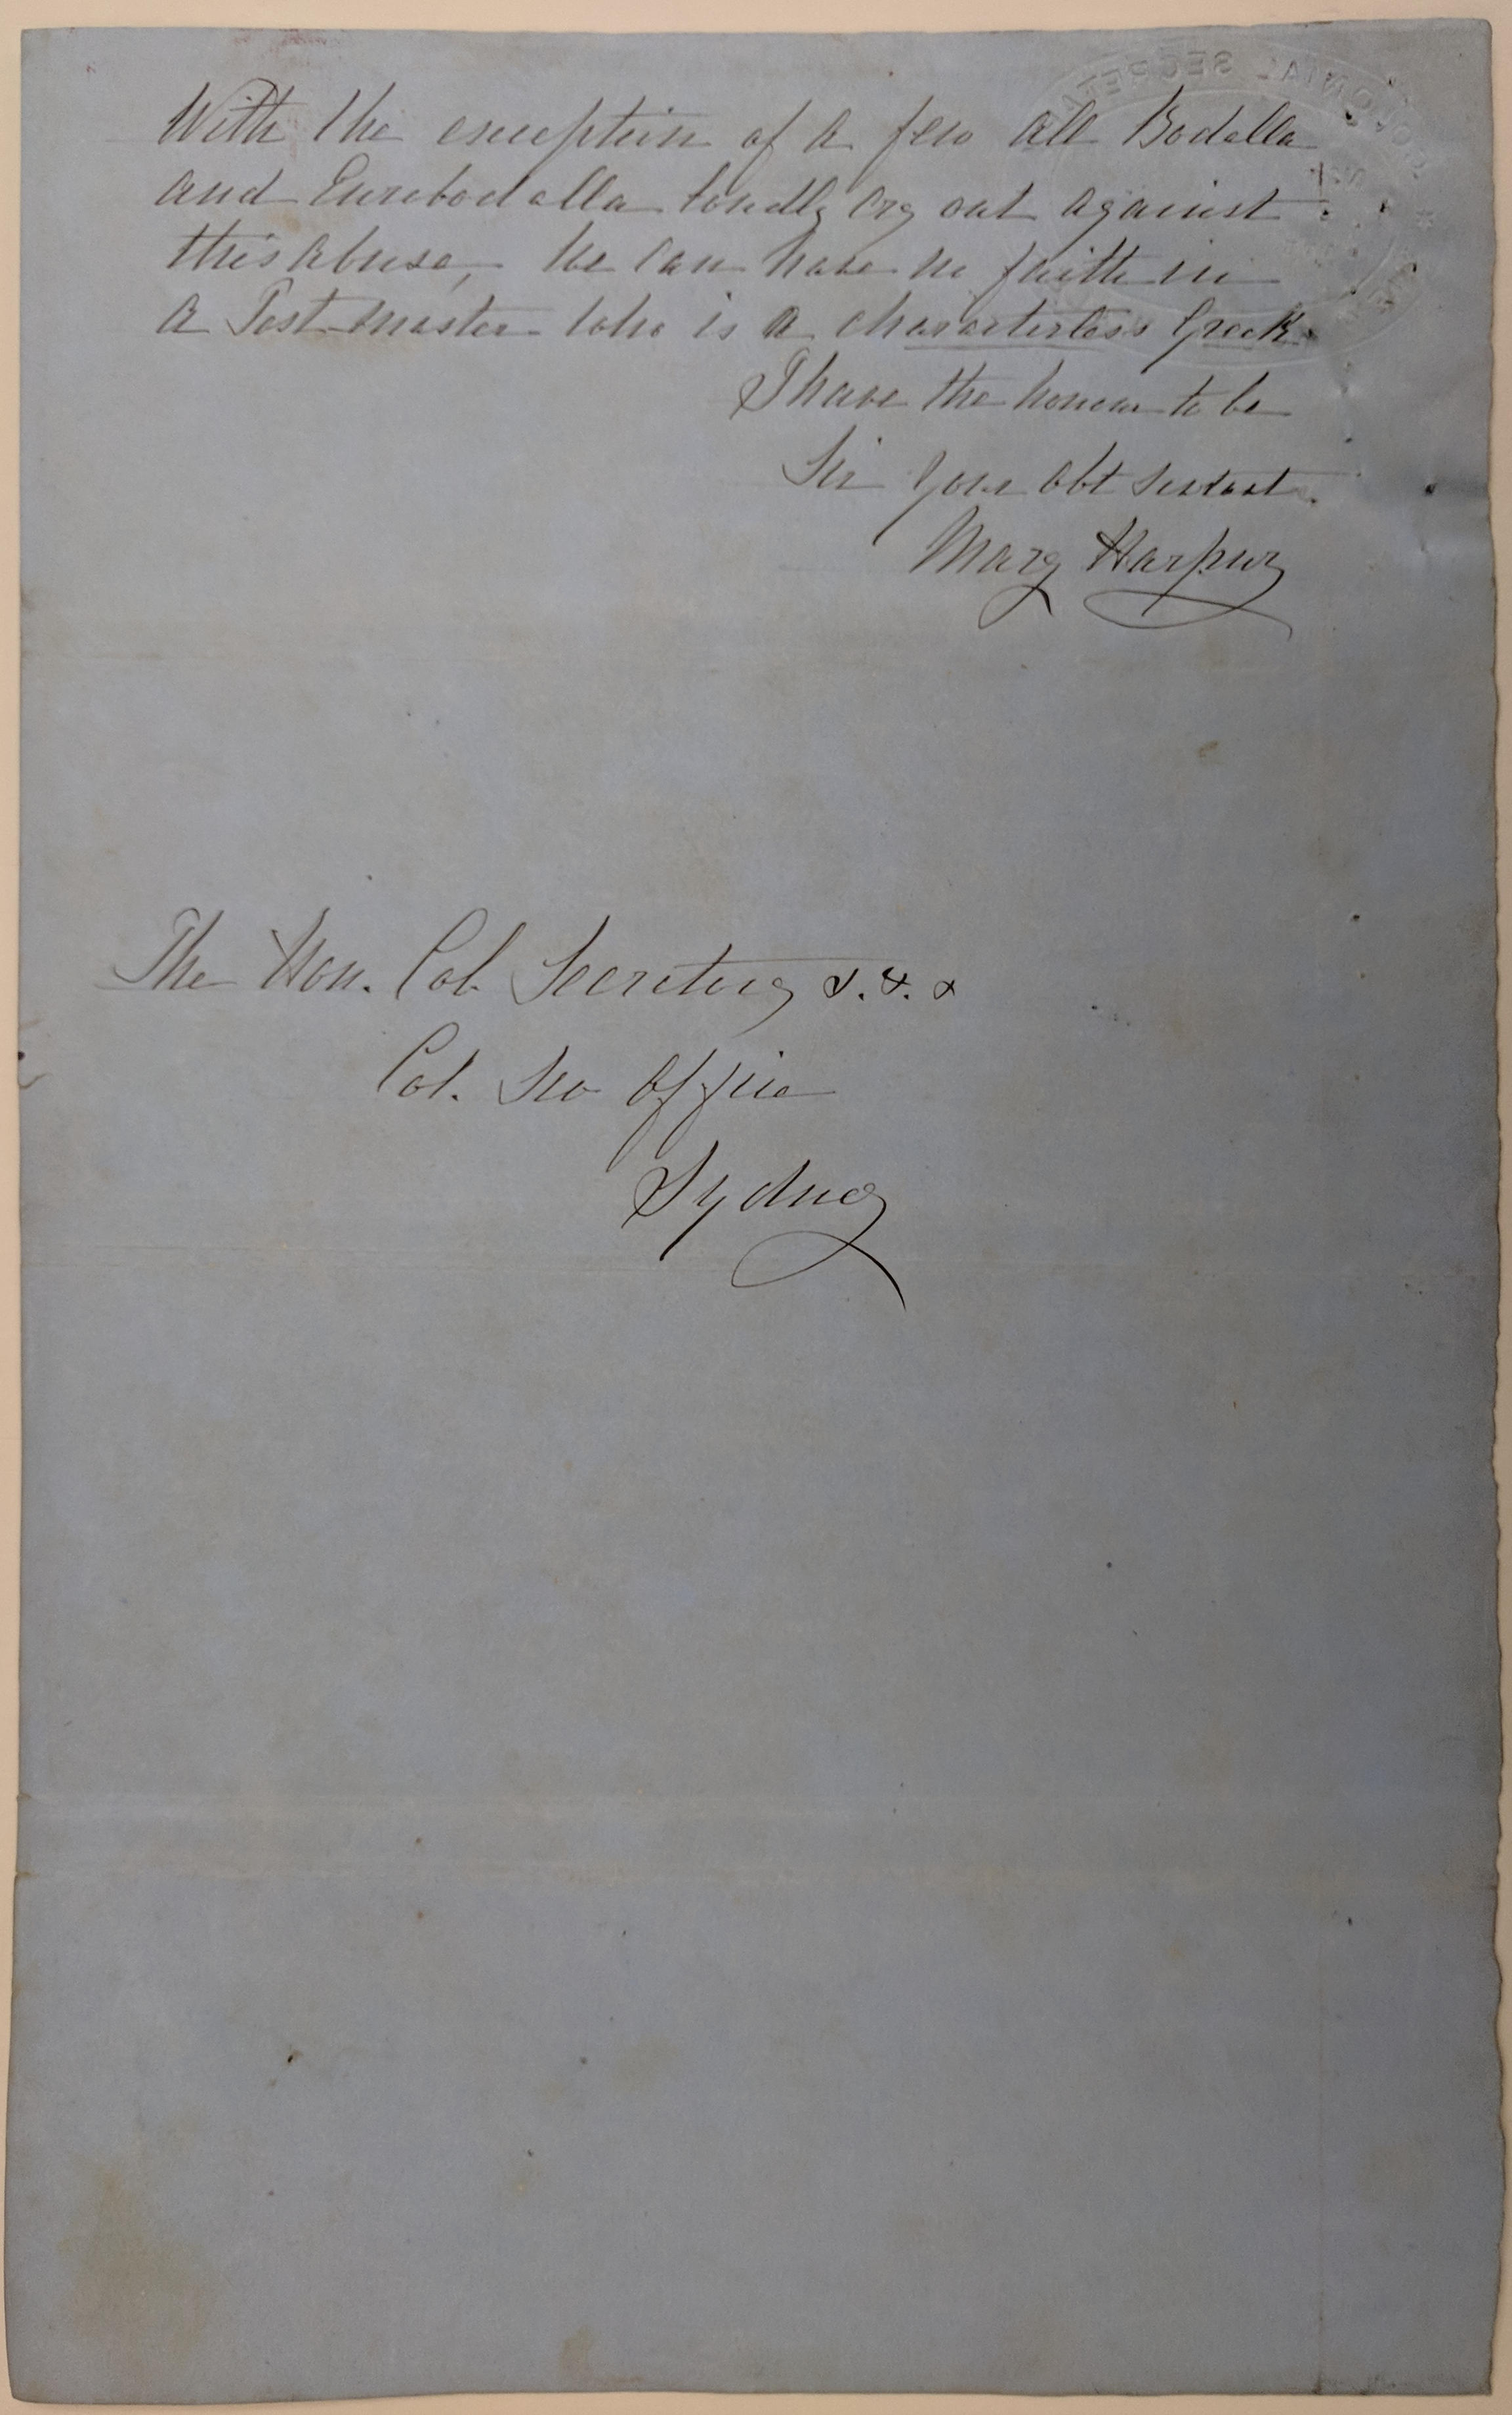 With the exception of a few all Bodalla
and Eurobodalla loudly cry out against
this abuse, We can have no faith in
a Post master who is a characterless Greek
I have the honour to be
Sir Your obt servant.
Mary Harpur
The Hon. Col. Secretary &.&.&
Col. Sec Office
Sydney
COLONIAL SECRETA